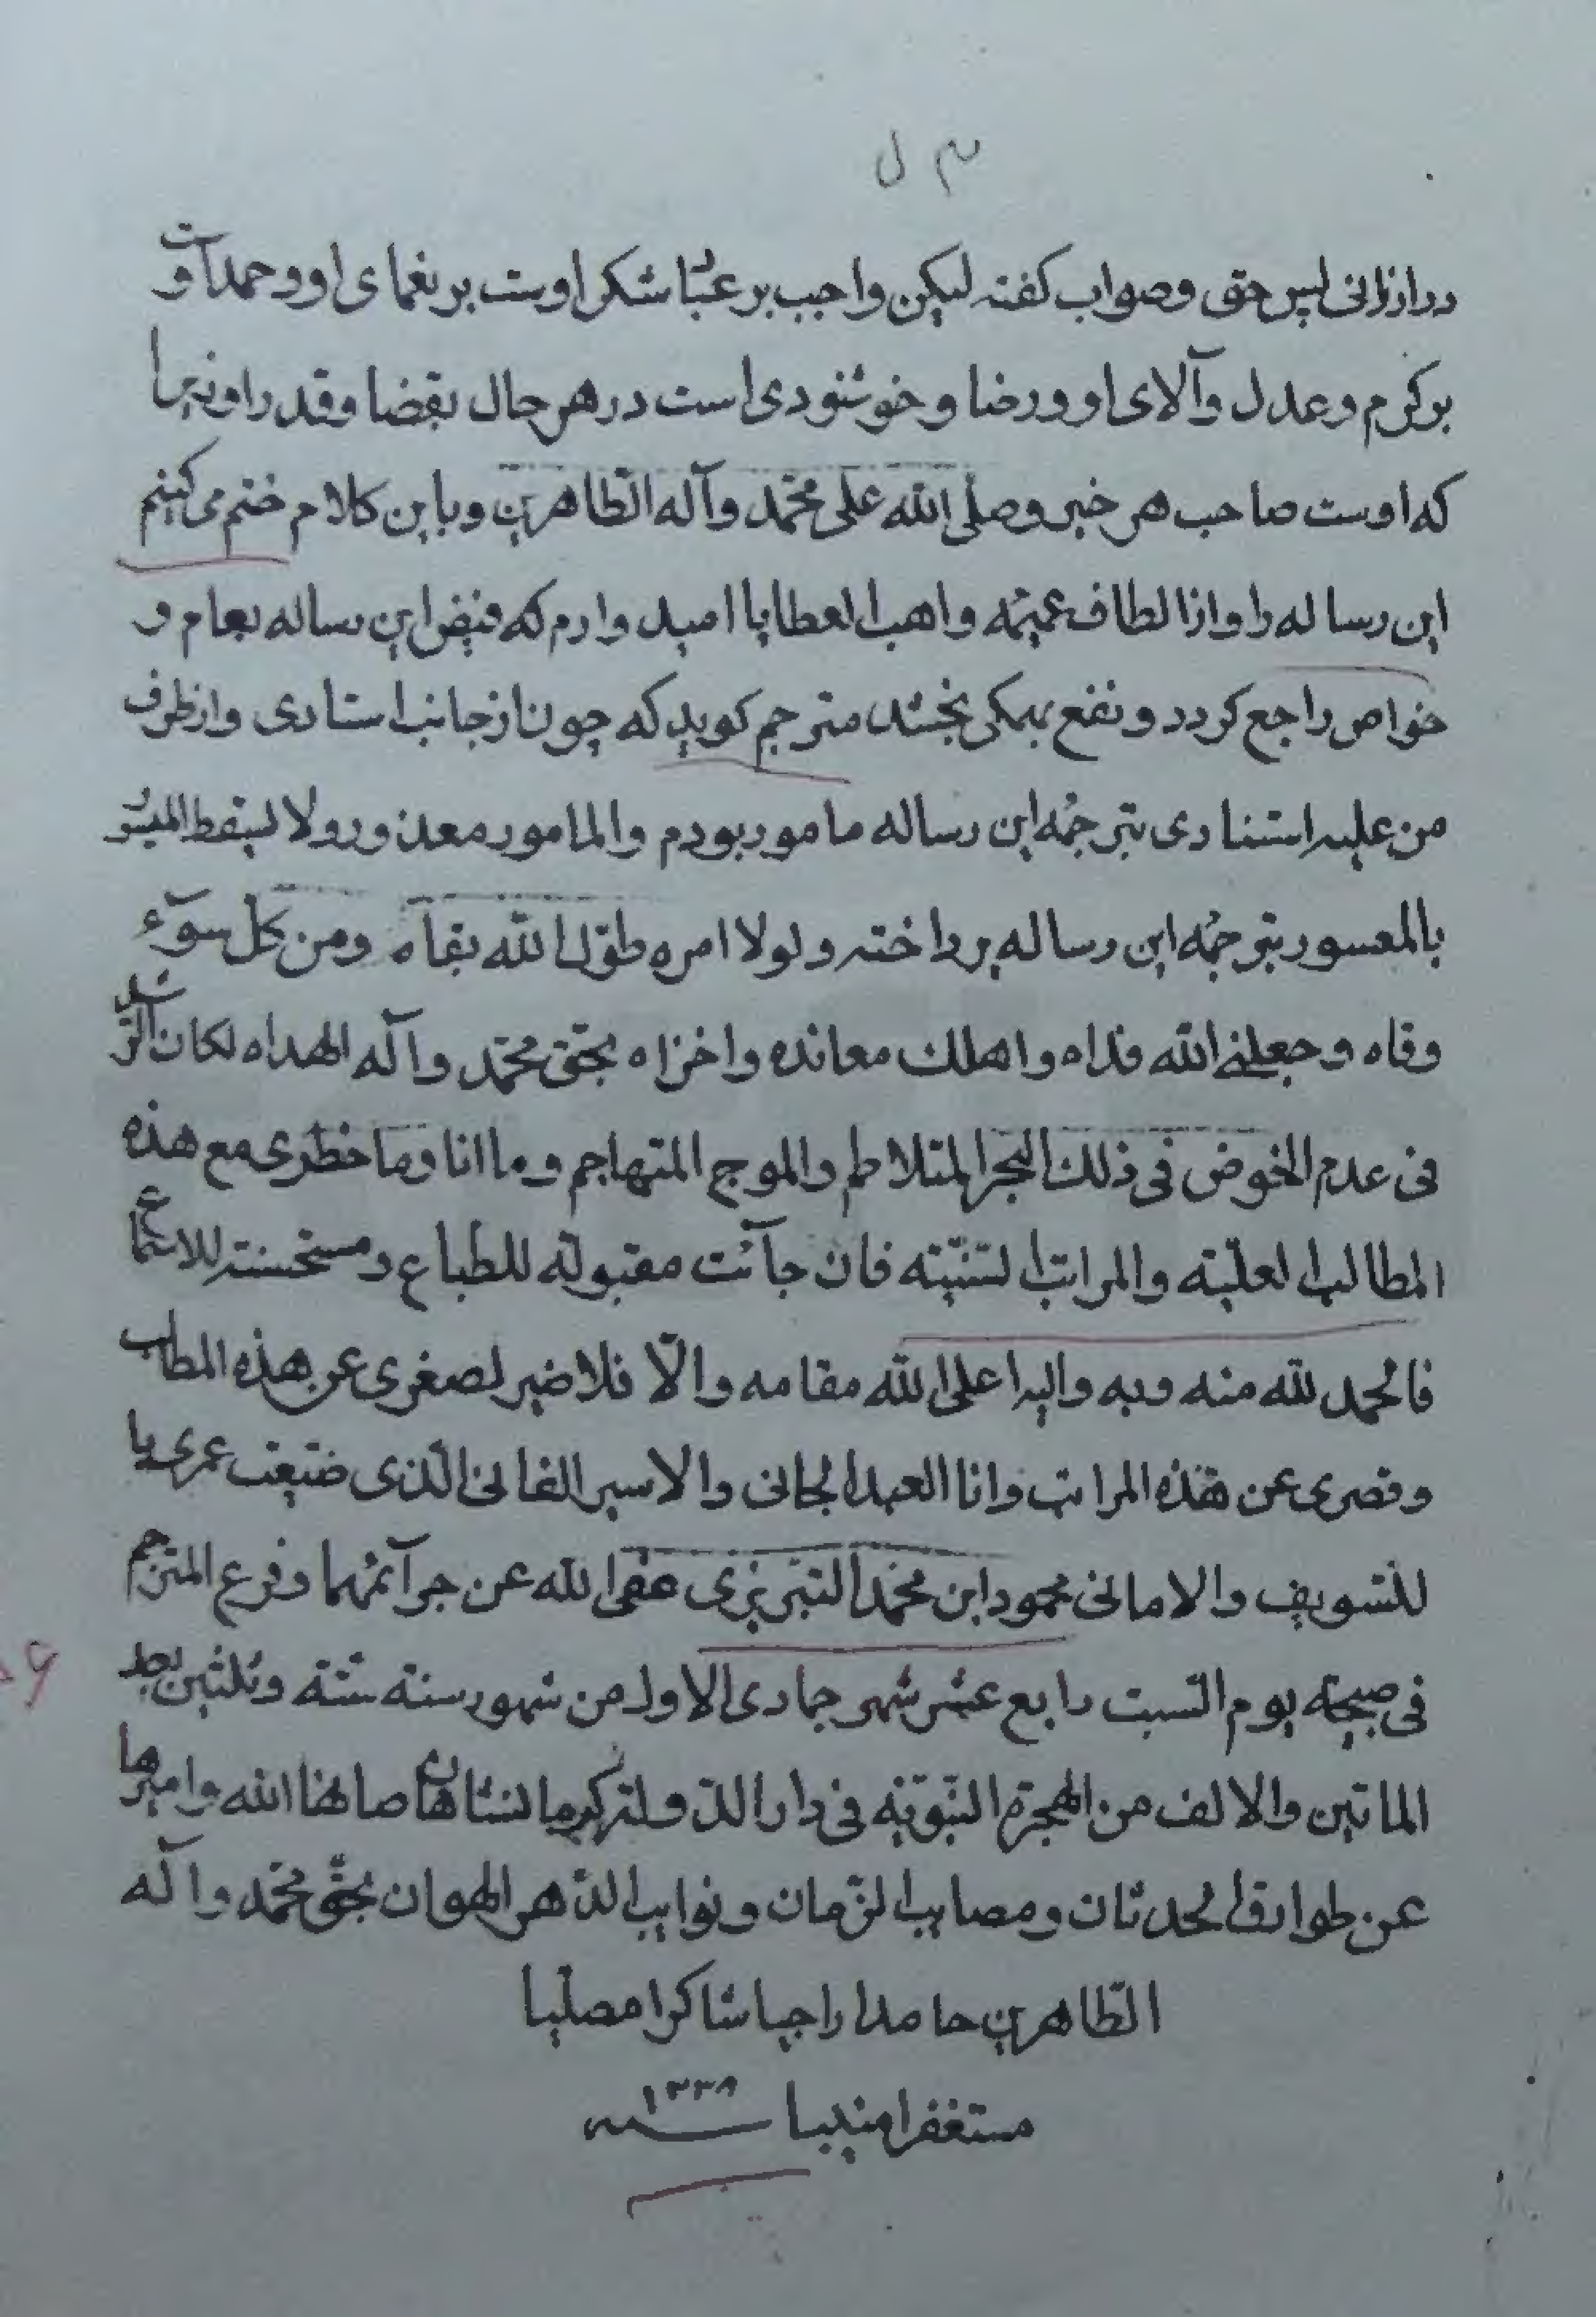 در ارزانی پس حق و صواب گفته لیکن واجب بر عباد شکر اوست بر نعمای او و حمد اوست
بر کرم و عدل و آلای او و رضا و خوشنودی است در هر حال بقضا و قدر او زیرا
که اوست صاحب هر خیر و صلّی الله علی محمّد و آله الطّاهرین و باین کلام ختم می کنیم
این رساله را و از الطاف عمیمه واهب العطایا امید وارم که فیض این رساله بعام و
خواص راجع کردد و نفع بهمکی بخشد مترجم کوید که چون از جانب استادی و از طرف
من علیه استنادی بترجمهٔ این رساله مامور بودم و المامور معذور ولا یسقط المیسور
بالمعسور بترجمهٔ این رساله پرداخته و لولا امره طوّل الله بقآه و من کل سوٓء
وقاه و جعلنی الله فداه و اهلک معانده و اخزاه بحقّ محمّد و آله الهداه لکان الرّشد
فی عدم الخوض فی ذلک البحر المتلاطم والموج المتهاجم و ما انا وما خطری مع هذه
المطالب العلیّه والمراتب السّنیّه فان جآئت مقبولة للطباع و مستحسنة للاسماع
فالحمد لله منه وبه والیه اعلی الله مقامه والّا فلا ضیر لصغری عن هذه المطالب
وقصری عن هذه المراتب وانا العبد الجانی والاسیر الفانی الّذی ضیّعت عمری با
للتسویف والامانی محمود ابن محمّد التبریزی عفی الله عن جرآئمهما وفرغ المترجم
فی صبیحة یوم السّبت رابع عشر شهر جمادی الاول من شهور سنة ستّة وثلثین بعد
الماتین والالف من الهجرة النّبویّه فی دار الدّولة کرمانشاهان صانها الله وامیرها
عن طوارق الحدثان ومصایب الزّمان ونوایب الدّهر الهوان بحقّ محمّد وآله
الطّاهرین حامدا راجیا شاکرا مصلّیا
مستغفرا منیبا سنه ۱۲۳۹